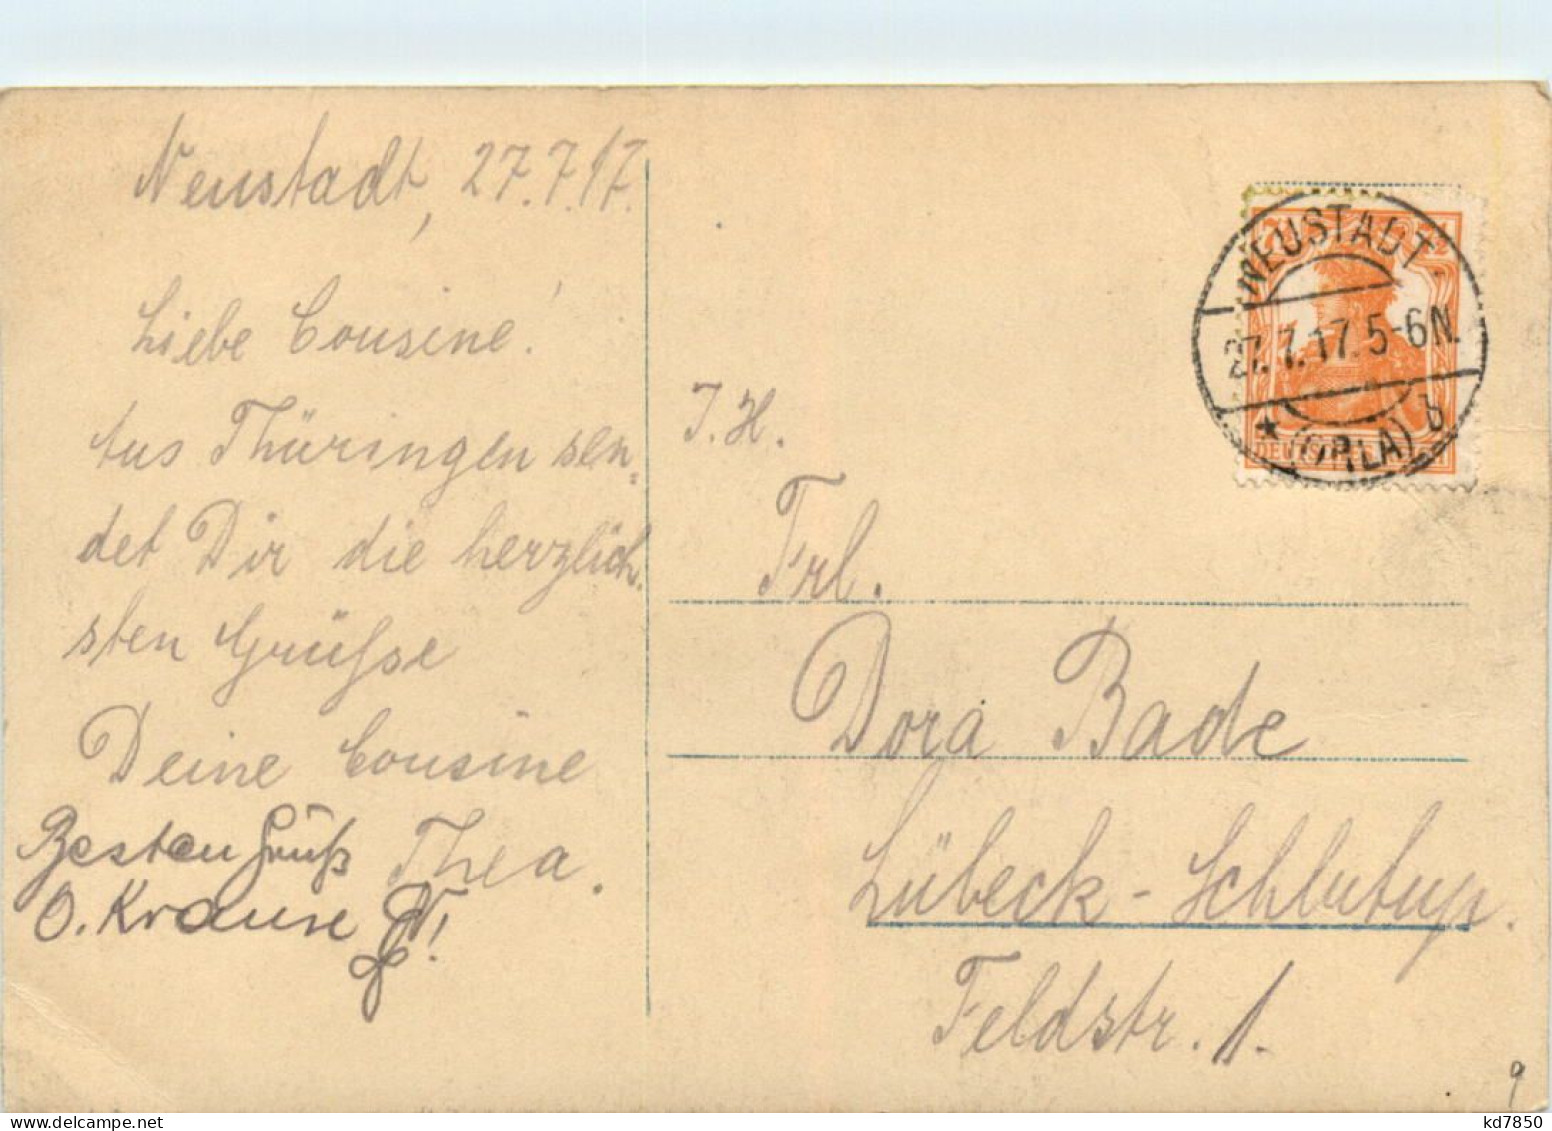 Neustadt, 27.7.17.
Liebe Cousine!
Aus Thüringen sen-
det Dir die herzlich-
sten Grüsse
Deine Cousine
Thea.
Besten Gruß
O. Krause
J. H.
Frl.
Dora Bade
Lübeck-Schlutup.
Feldstr. 1.
NEUSTADT
27. 7. 17. 5-6N.
* (ORLA) b
9
kd7850